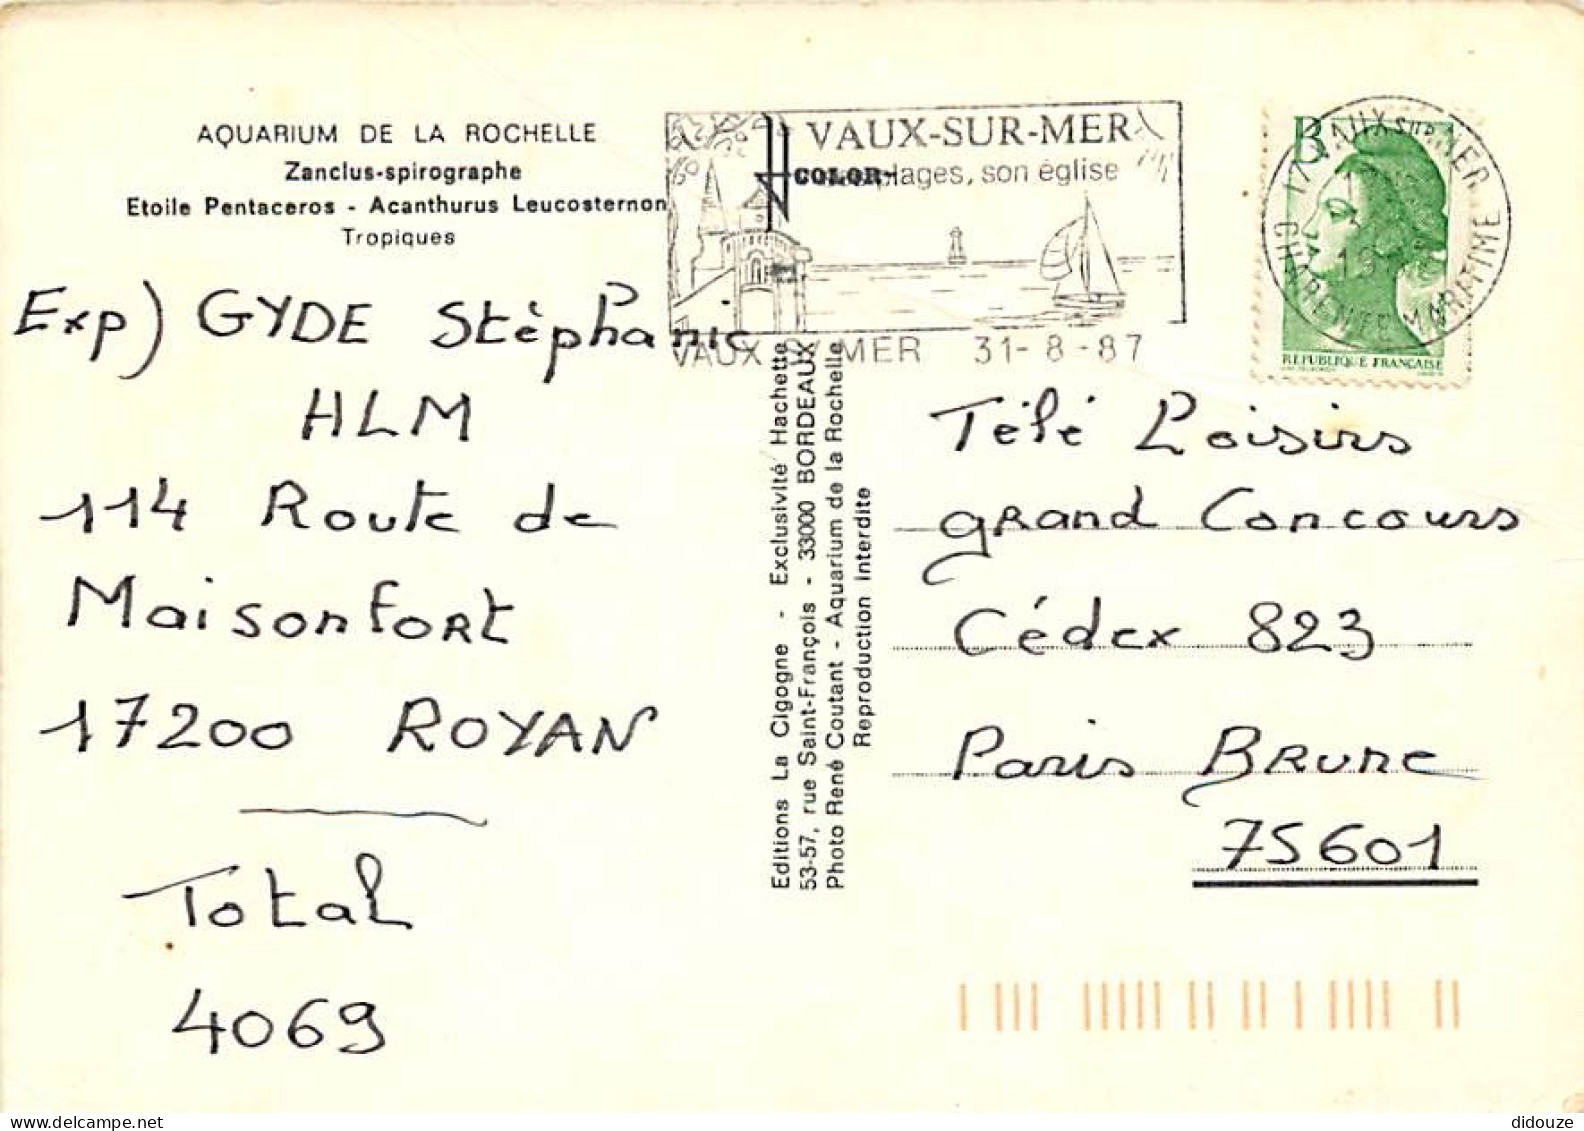 AQUARIUM DE LA ROCHELLE
Zanclus-spirographe
Etoile Pentaceros - Acanthurus Leucosternon
Tropiques
VAUX-SUR-MER
COLOR
plages, son église
VAUX S/ MER 31-8-87
B
17 VAUX SUR MER
CHARENTE MARITIME
REPUBLIQUE FRANÇAISE
Exp) GYDE Stéphanie
HLM
114 Route de
Maisonfort
17200 ROYAN
Total
4069
Editions La Cigogne - Exclusivité Hachette
53-57, rue Saint-François - 33000 BORDEAUX
Photo René Coutant - Aquarium de la Rochelle
Reproduction interdite
Télé Loisirs
grand Concours
Cédex 823
Paris Brune
75601
didouze